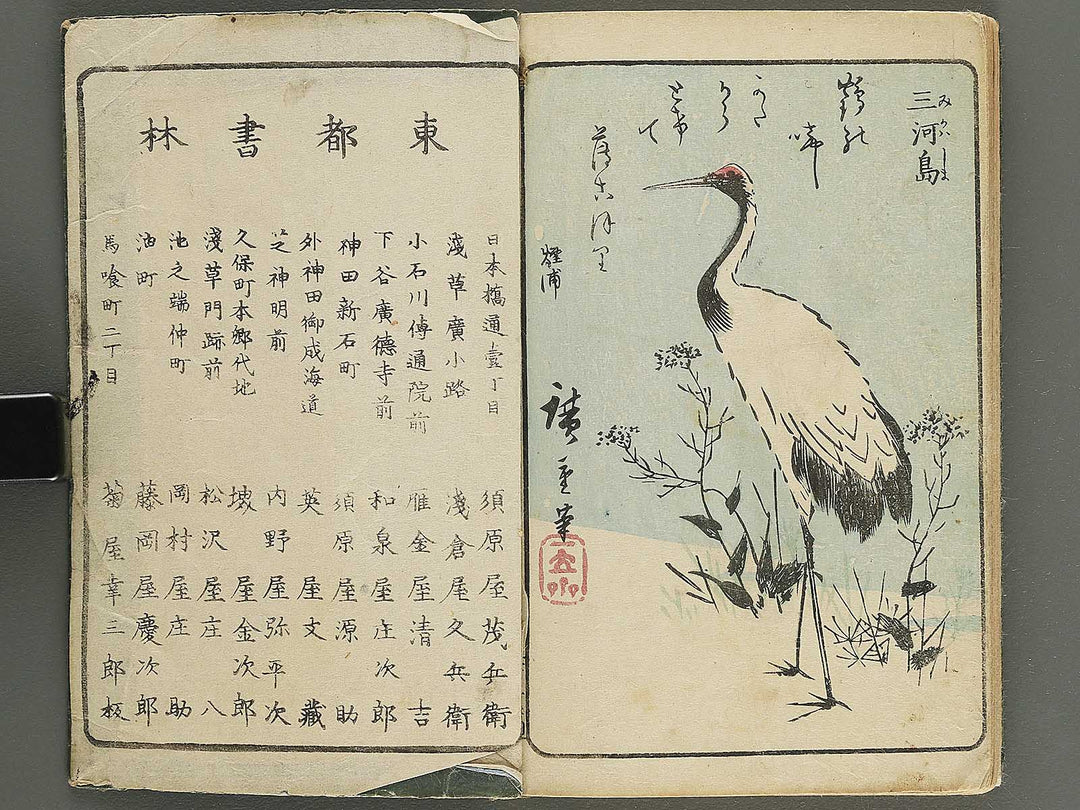 三河島
みかはしま
鶴の
啼
かた
から
とけ
て
薄氷り
烟浦
廣重筆
東都書林
日本橋通壹丁目 須原屋茂兵衛
淺草廣小路 淺倉屋久兵衛
小石川傳通院前 雁金屋清吉
下谷廣德寺前 和泉屋庄次郎
神田新石町 須原屋源助
外神田御成海道 英屋文藏
芝神明前 内野屋弥平次
久保町本郷代地 坡屋金次郎
淺草門跡前 松沢屋庄八
池之端仲町 岡村屋庄助
油町 藤岡屋慶次郎
馬喰町二丁目 菊屋幸三郎板